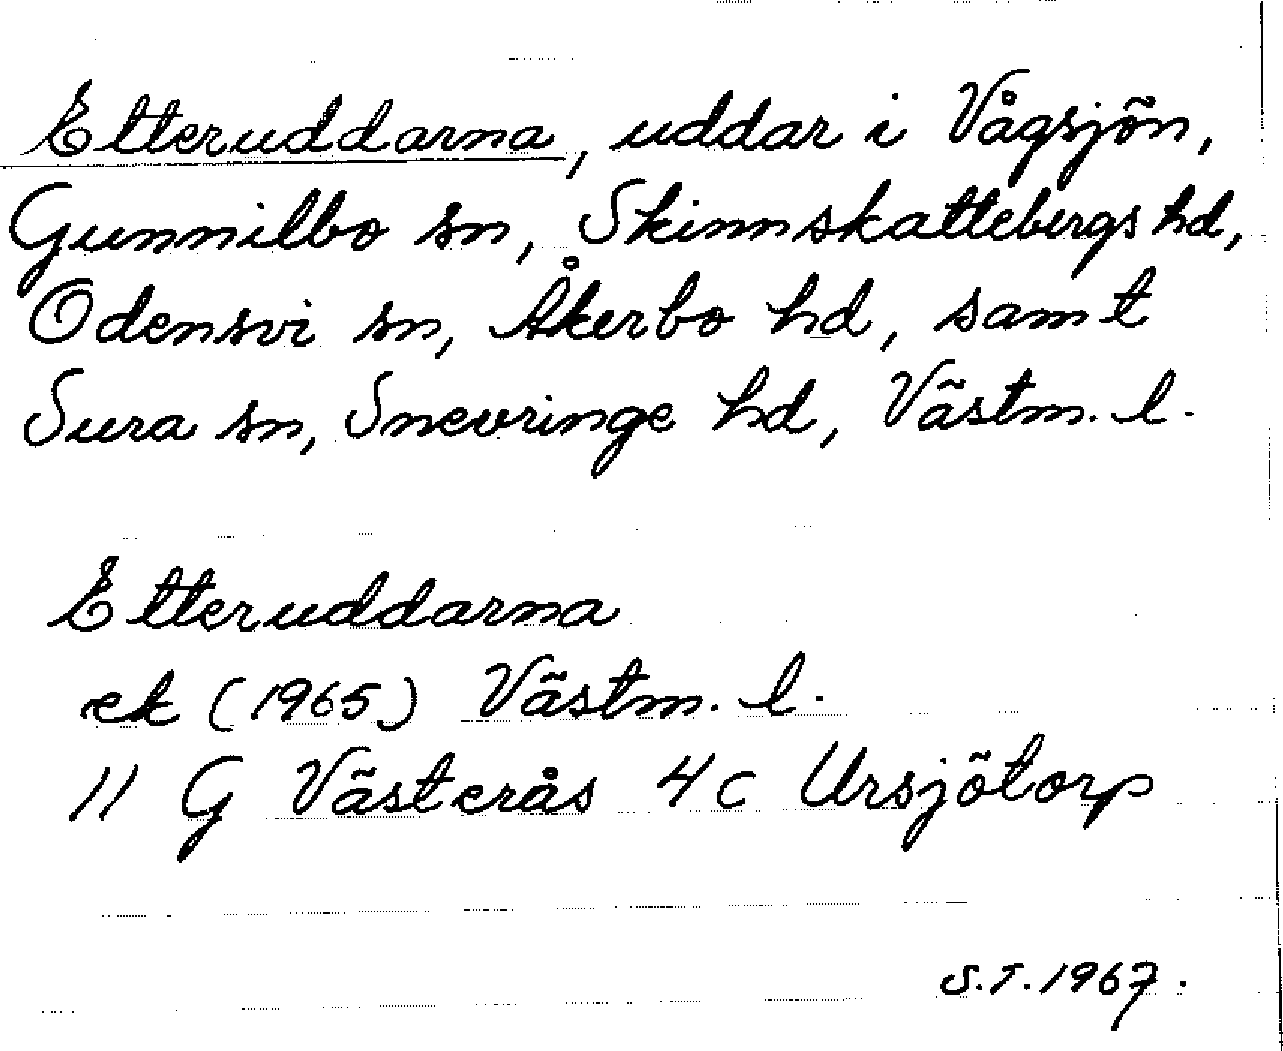 Etteruddarna, uddar i Vågsjön,
Gunnilbo sn, Skinnskattebergs hd,
Odensvi sn, Åkerbo hd, samt
Sura sn, Snevringe hd, Västm. l.
Etteruddarna
ek (1965) Västm. l.
11 G Västerås 4 c Ursjötorp
S.T. 1967.